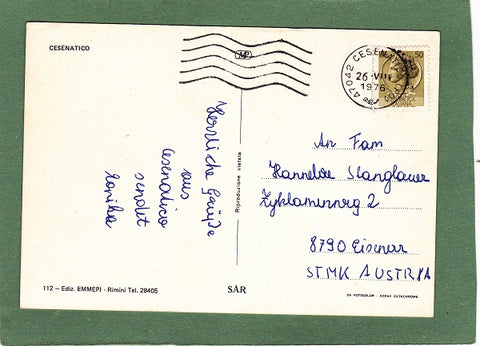 CESENATICO
50
47042 CESENATICO
26-VIII
1976
Herzliche Grüße
aus
Cesenatico
sendet
Monika
Riproduzione vietata
An Fam
Hannelore Stanglauer
Zyklamenweg 2
8790 Eisenerz
STMK AUSTRIA
112 – Ediz. EMMEPI - Rimini Tel. 28405
SAR